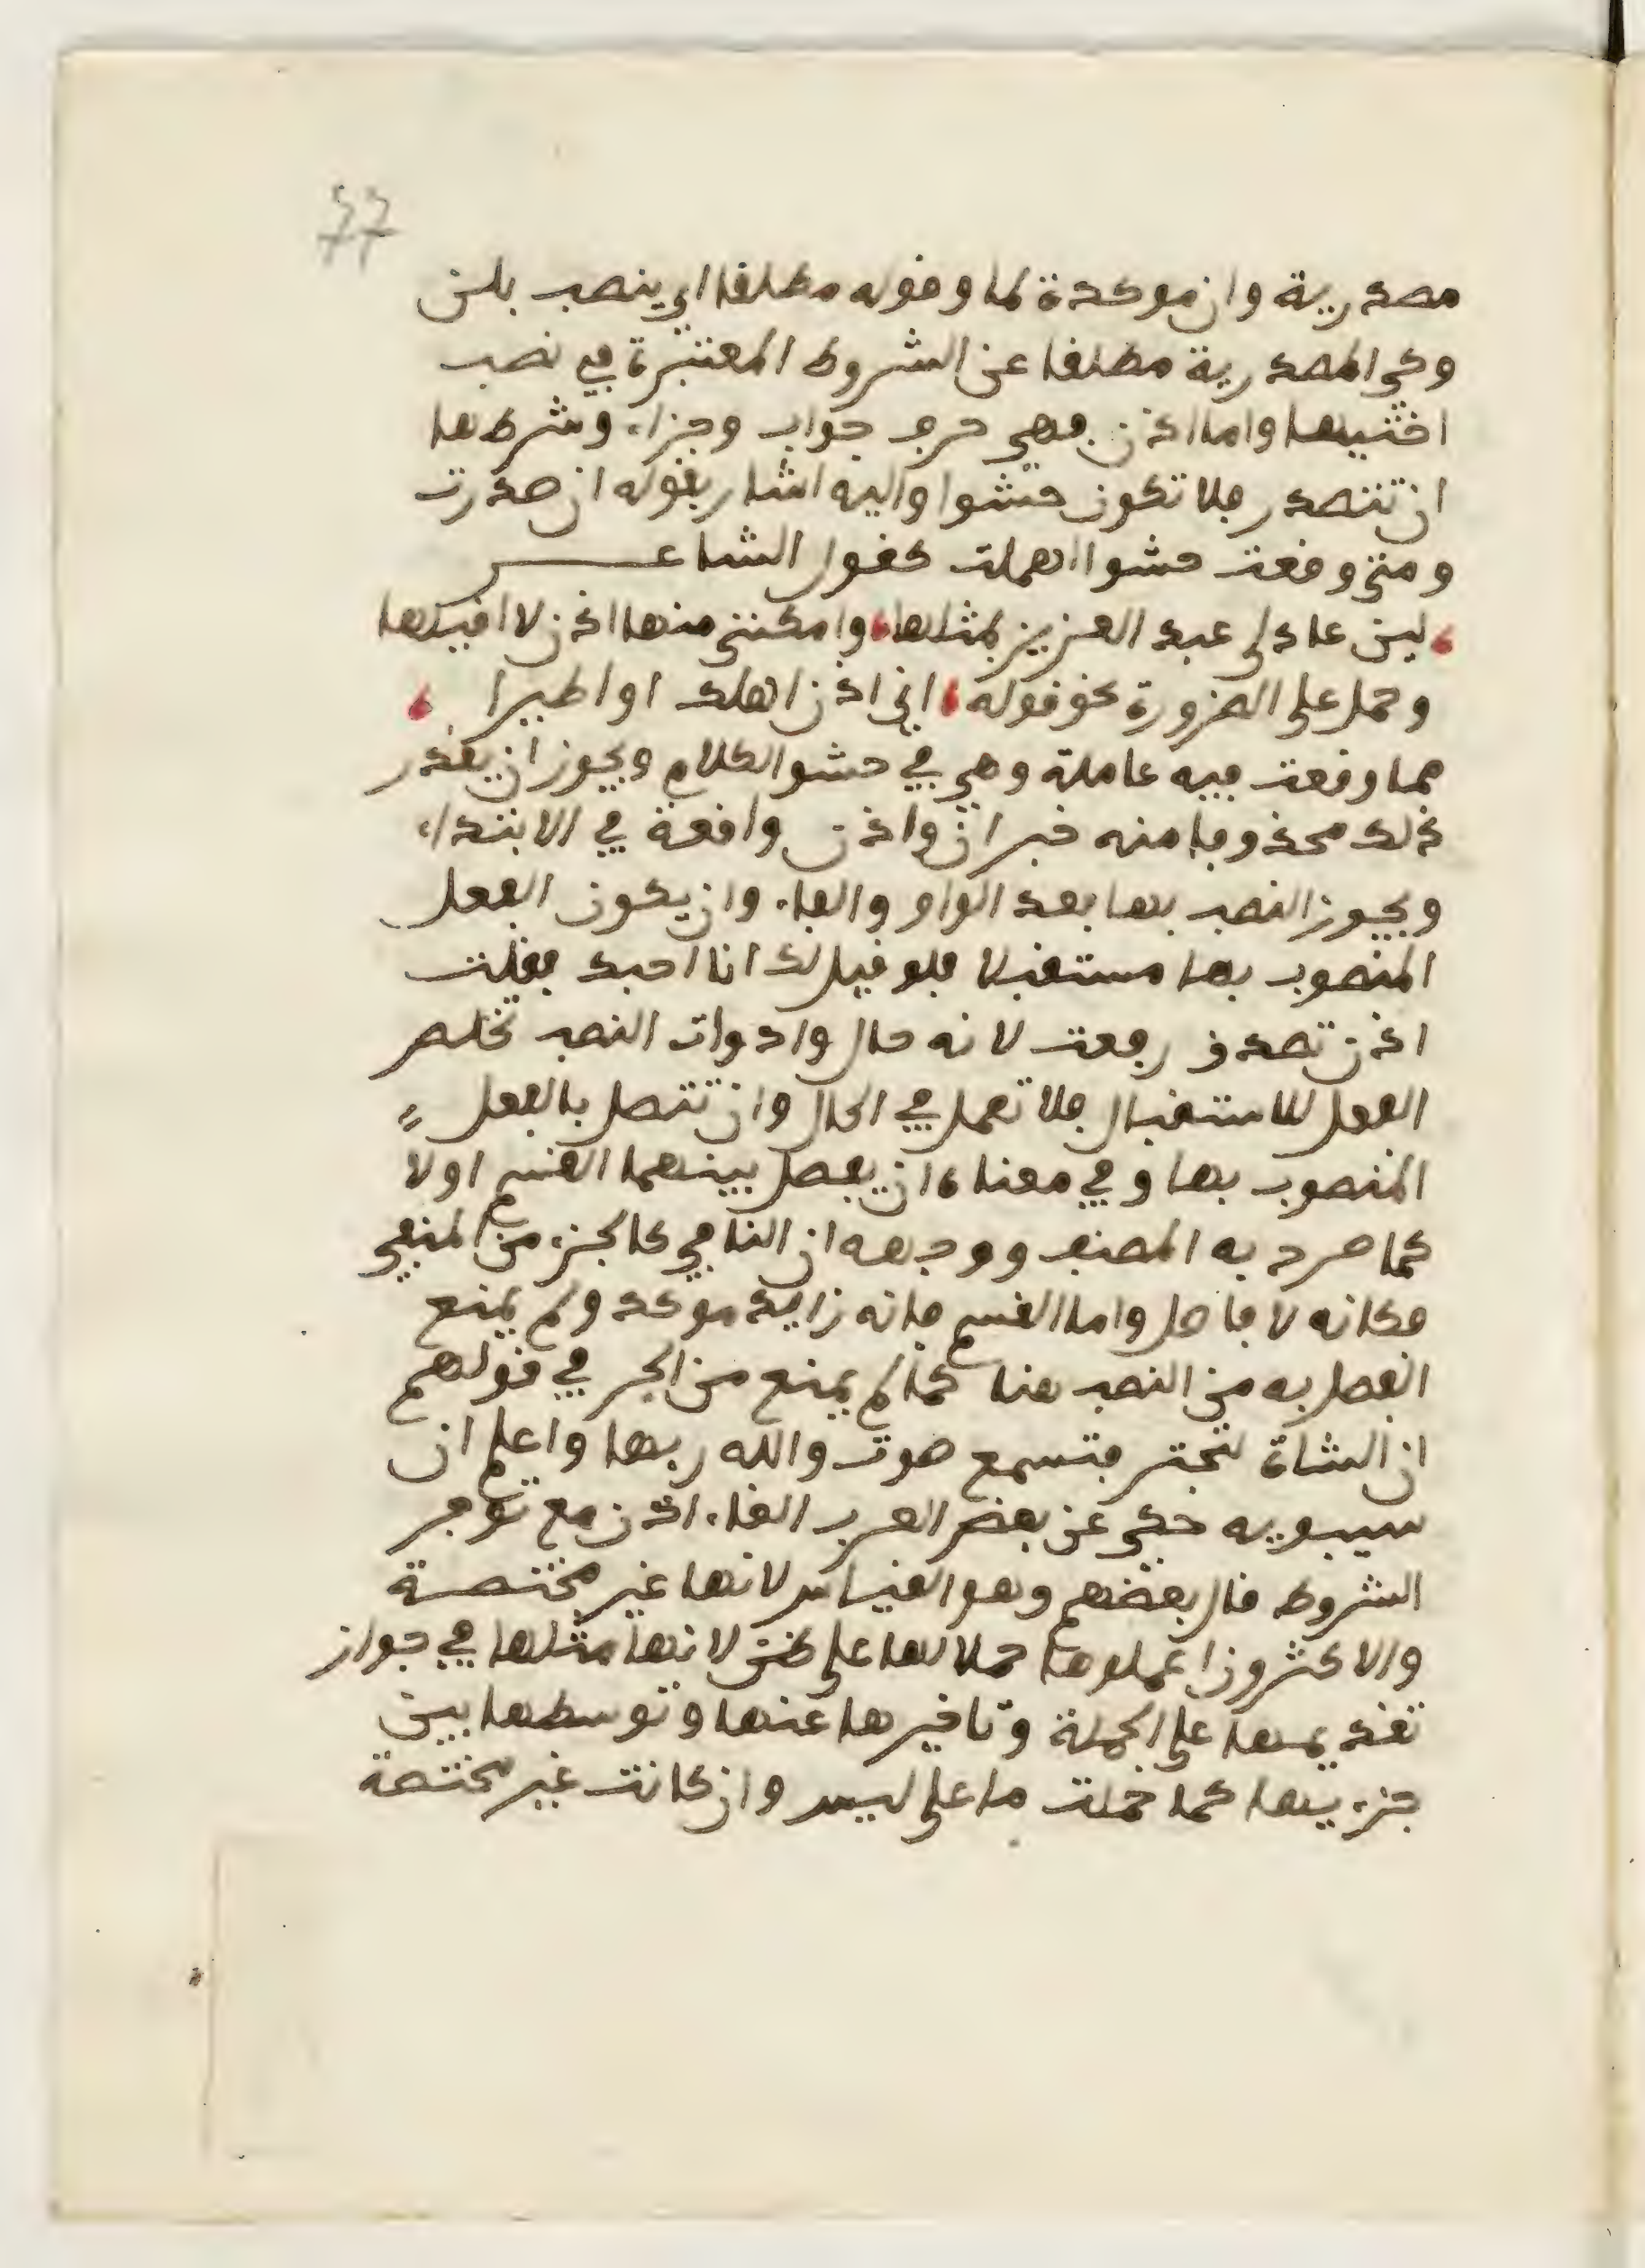 77
مصدرية وان موكدة لها وقوله مطلقا اي ينصب بلن
وكي المصدرية مطلقا عن الشروط المعتبرة في نصب
اختيها واما اذن فهي حرف جواب وجزاء وشرطها
ان تتصدر فلا تكون حشوا واليه اشار بقوله ان صدرت
ومتى وقعت حشوا اهملت كقول الشاعر
لين عاد لي عبد العزيز بمثلها وامكنني منها اذن لا اقيلها
وحمل على الضرورة نحو قوله اني اذن اهلك او اطيرا
مما وقعت فيه عاملة وهي في حشو الكلام ويجوز ان يقدر
ذلك محذوفا منه خبر ان واذن واقعة في الابتداء
ويجوز النصب بها بعد الواو والفاء وان يكون الفعل
المنصوب بها مستقبلا فلو قيل لك انا احبك فقلت
اذن تصدق رفعت لانه حال وادوات النصب تخلص
الفعل للاستقبال فلا تعمل في الحال وان تتصل بالفعل
المنصوب بها وفي معناه ان يفصل بينهما القسم او لا
كما صرح به المصنف ووجهه ان النافي كالجزء من المنفي
فكانه لا فاصل واما القسم فانه زايد موكد ولم يمنع
الفصل به من النصب هنا كما لم يمنع من الجر في قولهم
ان الشاة لتجتر فتسمع صوت والله ربها واعلم ان
سيبويه حكى عن بعض العرب الغاء اذن مع توفر
الشروط قال بعضهم وهو القياس لانها غير مختصة
والاكثرون اعملوها حملا لها على ظن لانها مثلها في جواز
تقديمها على الجملة وتاخيرها عنها وتوسطها بين
جزءيها كما حملت ما على ليس وان كانت غير مختصة